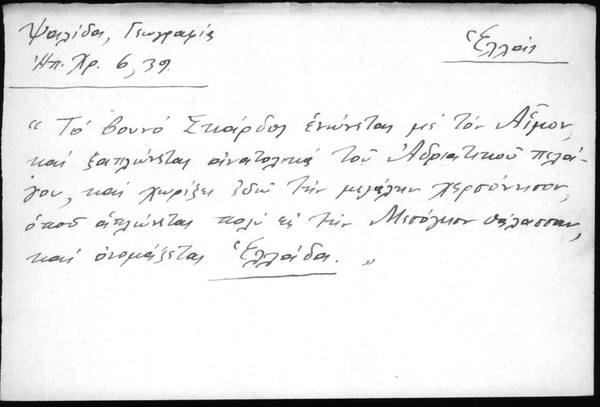 Ψαλίδα, Γεωγραφία
Ἑλλάς
Ἠπ. Χρ. 6, 39.
"Τό βουνό Σκάρδος ἑνώνεται μέ τόν Αἷμον,
καί ξαπλώνεται ἀνατολικά τοῦ Ἀδριατικοῦ πελά-
γου, καί χωρίζει ἐδῶ τήν μεγάλην χερσόνησον,
ὁποῦ ἁπλώνεται πολύ εἰς τήν Μεσόγειον θάλασσαν,
καί ὀνομάζεται Ἑλλάδα."